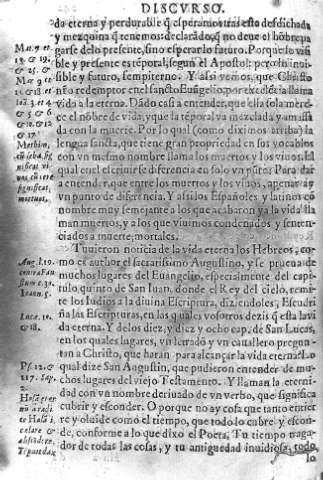 DISCVRSO.
da eterna y perdurable q̃ esperamos tras esta desdichada
y mezquina q̃ tenemos: declarãdo, q̃ no deue el hõbre pa
garse de lo presente, sino esperar lo futuro. Porque lo visi
ble y presente es tẽporal, segun el Apostol: pero lo inuisi
ble y futuro, sempiterno. Y assi vemos, que Christo
nro redemptor en el sancto Euãgelio, por excelẽcia llama
vida a la eterna. Dãdo casi a entender, que ella sola mere-
ce el nõbre de vida, y que la tẽporal va mezclada y amassa
da con la muerte. Por lo qual (como diximos arriba) la
lengua sancta, que tiene gran propriedad en sus vocablos
con vn mesmo nombre llama los muertos y los viuos. El
qual en el escriuir se diferencia en solo vn pũto. Para dar
a entender, que entre los muertos y los viuos, apenas ay
vn punto de diferencia. Y assi los Españoles y latinos cõ
nombre muy semejante a los que acabaron ya la vida lla
man muertos, y a los que viuimos condenados y senten-
ciados a muerte, mortales.
Tuuieron noticia de la vida eterna los Hebreos, co-
mo es author el sacratissimo Augustino, y se prueua de
muchos lugares del Euangelio, especialmente del capi-
tulo quinto de San Iuan, donde el Rey del cielo, remi-
te los Iudios a la diuina Escriptura, diziendoles, Escudri
ña las Escripturas, en las quales vosotros dezis q̃ esta la vi
da eterna. Y de los diez, y diez y ocho cap. de San Lucas,
en los quales lugares, vn letrado y vn cauallero pregun-
tan a Christo, que haran para alcançar la vida eterna. Lo
qual dize San Augustin, que pudieron entender de mu-
chos lugares del viejo Testamento. Y llaman la eterni-
dad con vn nombre deriuado de vn verbo, que significa
cubrir y esconder. O porque no ay cosa que tanto entier
re y oluide como el tiempo, que todo lo cubre y escon-
de, conforme a lo que dixo el Poeta, Tu tiempo traga-
dor de todas las cosas, y tu antiguedad inuidiosa, todo
lo
Mat. 7. et
& 19.
& 25. &
Mar. 9. et
10. & Ioã
3. 4
5. & 6.
& 12
& 17.
significat,
mortuus,
Aug. l. 19.
contra Fau
stum c. 30.
Ioann. 5.
Luc. 10.
& 18.
Ps. 12. &
117. Sap.
2.